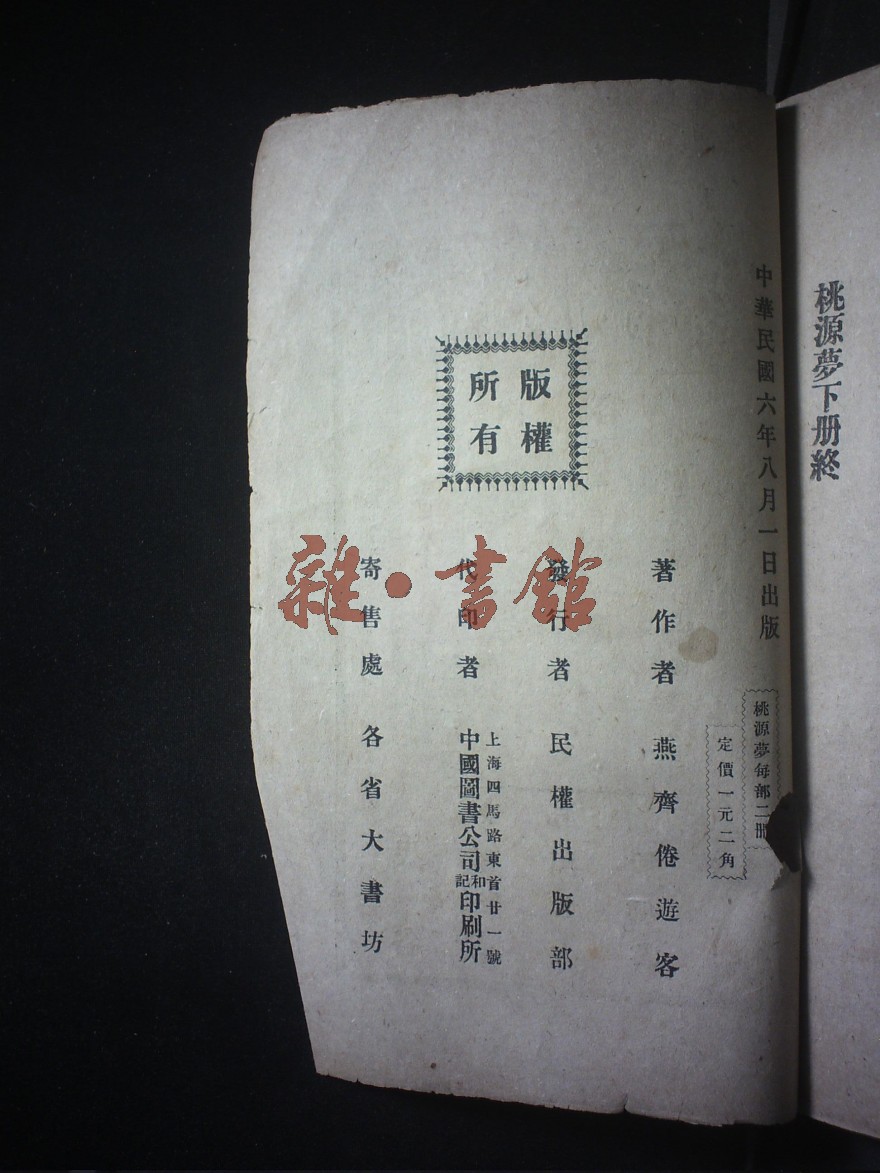 桃源夢下册終
中華民國六年八月一日出版
桃源夢每部二册
定價一元二角
版權
所有
著作者 燕齊倦遊客
發行者 民權出版部
上海四馬路東首廿一號
代印者 中國圖書公司和記印刷所
寄售處 各省大書坊
雜·書館